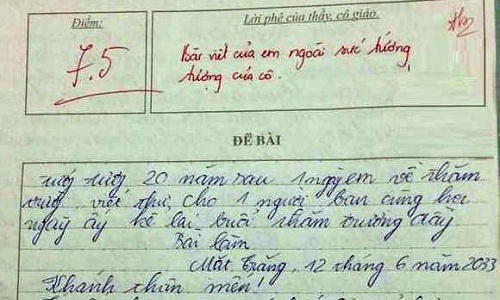 Điểm:
7.5
Lời phê của thầy, cô giáo.
Bài viết của em ngoài sức tưởng
tượng của cô.
ĐỀ BÀI
20 năm sau 1 ngày em về thăm
viết thư cho 1 người bạn cùng học
ngày ấy kể lại buổi thăm trường đầy
Bài làm
Mặt Trăng, 12 tháng 6 năm 2033
Khánh thân mến!